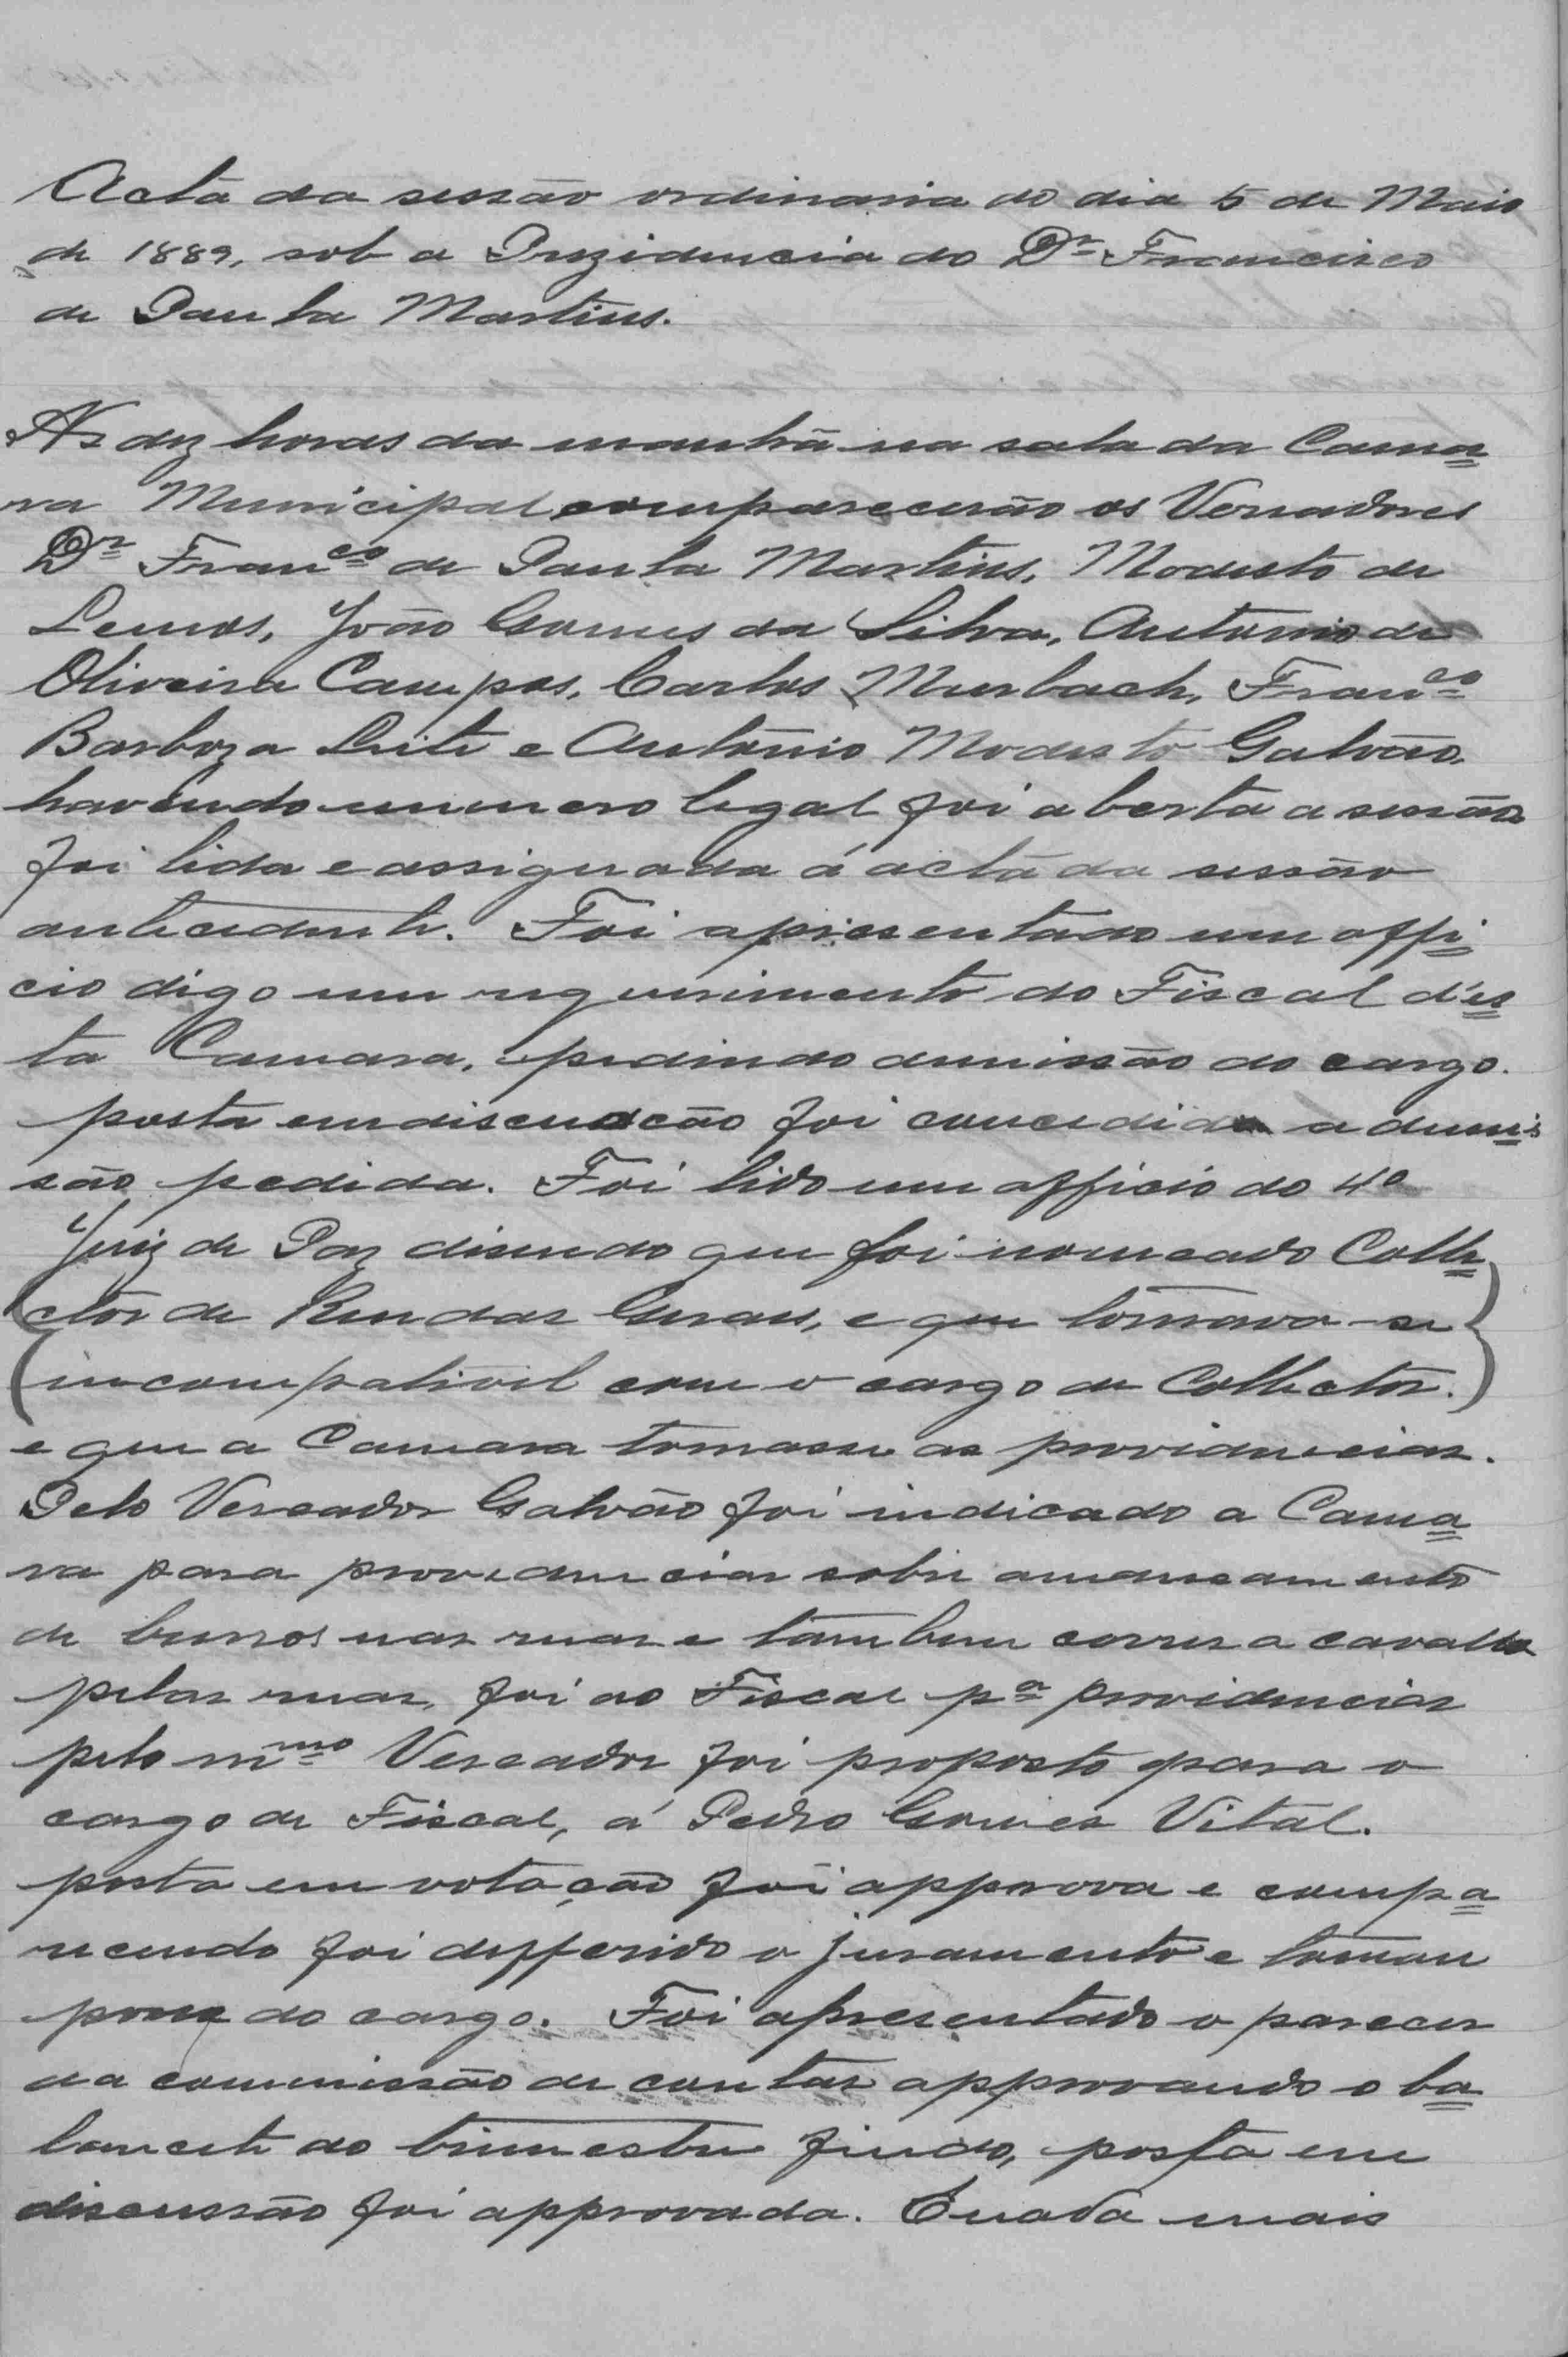 Acta da sessão ordinaria do dia 5 de Maio
de 1889, sob a Prezidencia do Dr Francisco
de Paula Martins.
As dez horas da manhã na sala da Cama
ra Municipal comparecerão os Vereadores
Dr Franco de Paula Martins, Modesto de
Lemos, João Gomes da Silva, Antonio de
Oliveira Campos, Carlos Murbach, Franco
Barboza Leite e Antônio Modesto Galvão.
havendo numero legal foi aberta a sessão
foi lida e assignada á acta da sessão
antecedente. Foi apresentado um offi
cio digo um requerimento do Fiscal d'es
ta Camara, pedindo demissão do cargo.
posta em discussão foi concedida a demis
são pedida. Foi lido um officio do 4º
Juiz de Paz disendo que foi nomeado Colle
ctor de Rendas Geraes, e que tornava-se
incompativil com o cargo de Collector.
e que a Camara tomasse as providencias.
Pelo Vereador Galvão foi indicado a Cama
ra para providenciar sobre amansamento
de burros nas ruas e tambem correr a cavallo
pelas ruas, foi ao Fiscal pa providenciar
pelo mmo Vereador foi proposto para o
cargo de Fiscal, á Pedro Gomes Vital.
posta em votação foi approva e compa
recendo foi defferido o juramento e tomou
posse do cargo. Foi apresentado o parecer
da commissão de contas approvando o ba
lancete do trimestre findo, posta em
discussão foi approvada. E nada mais